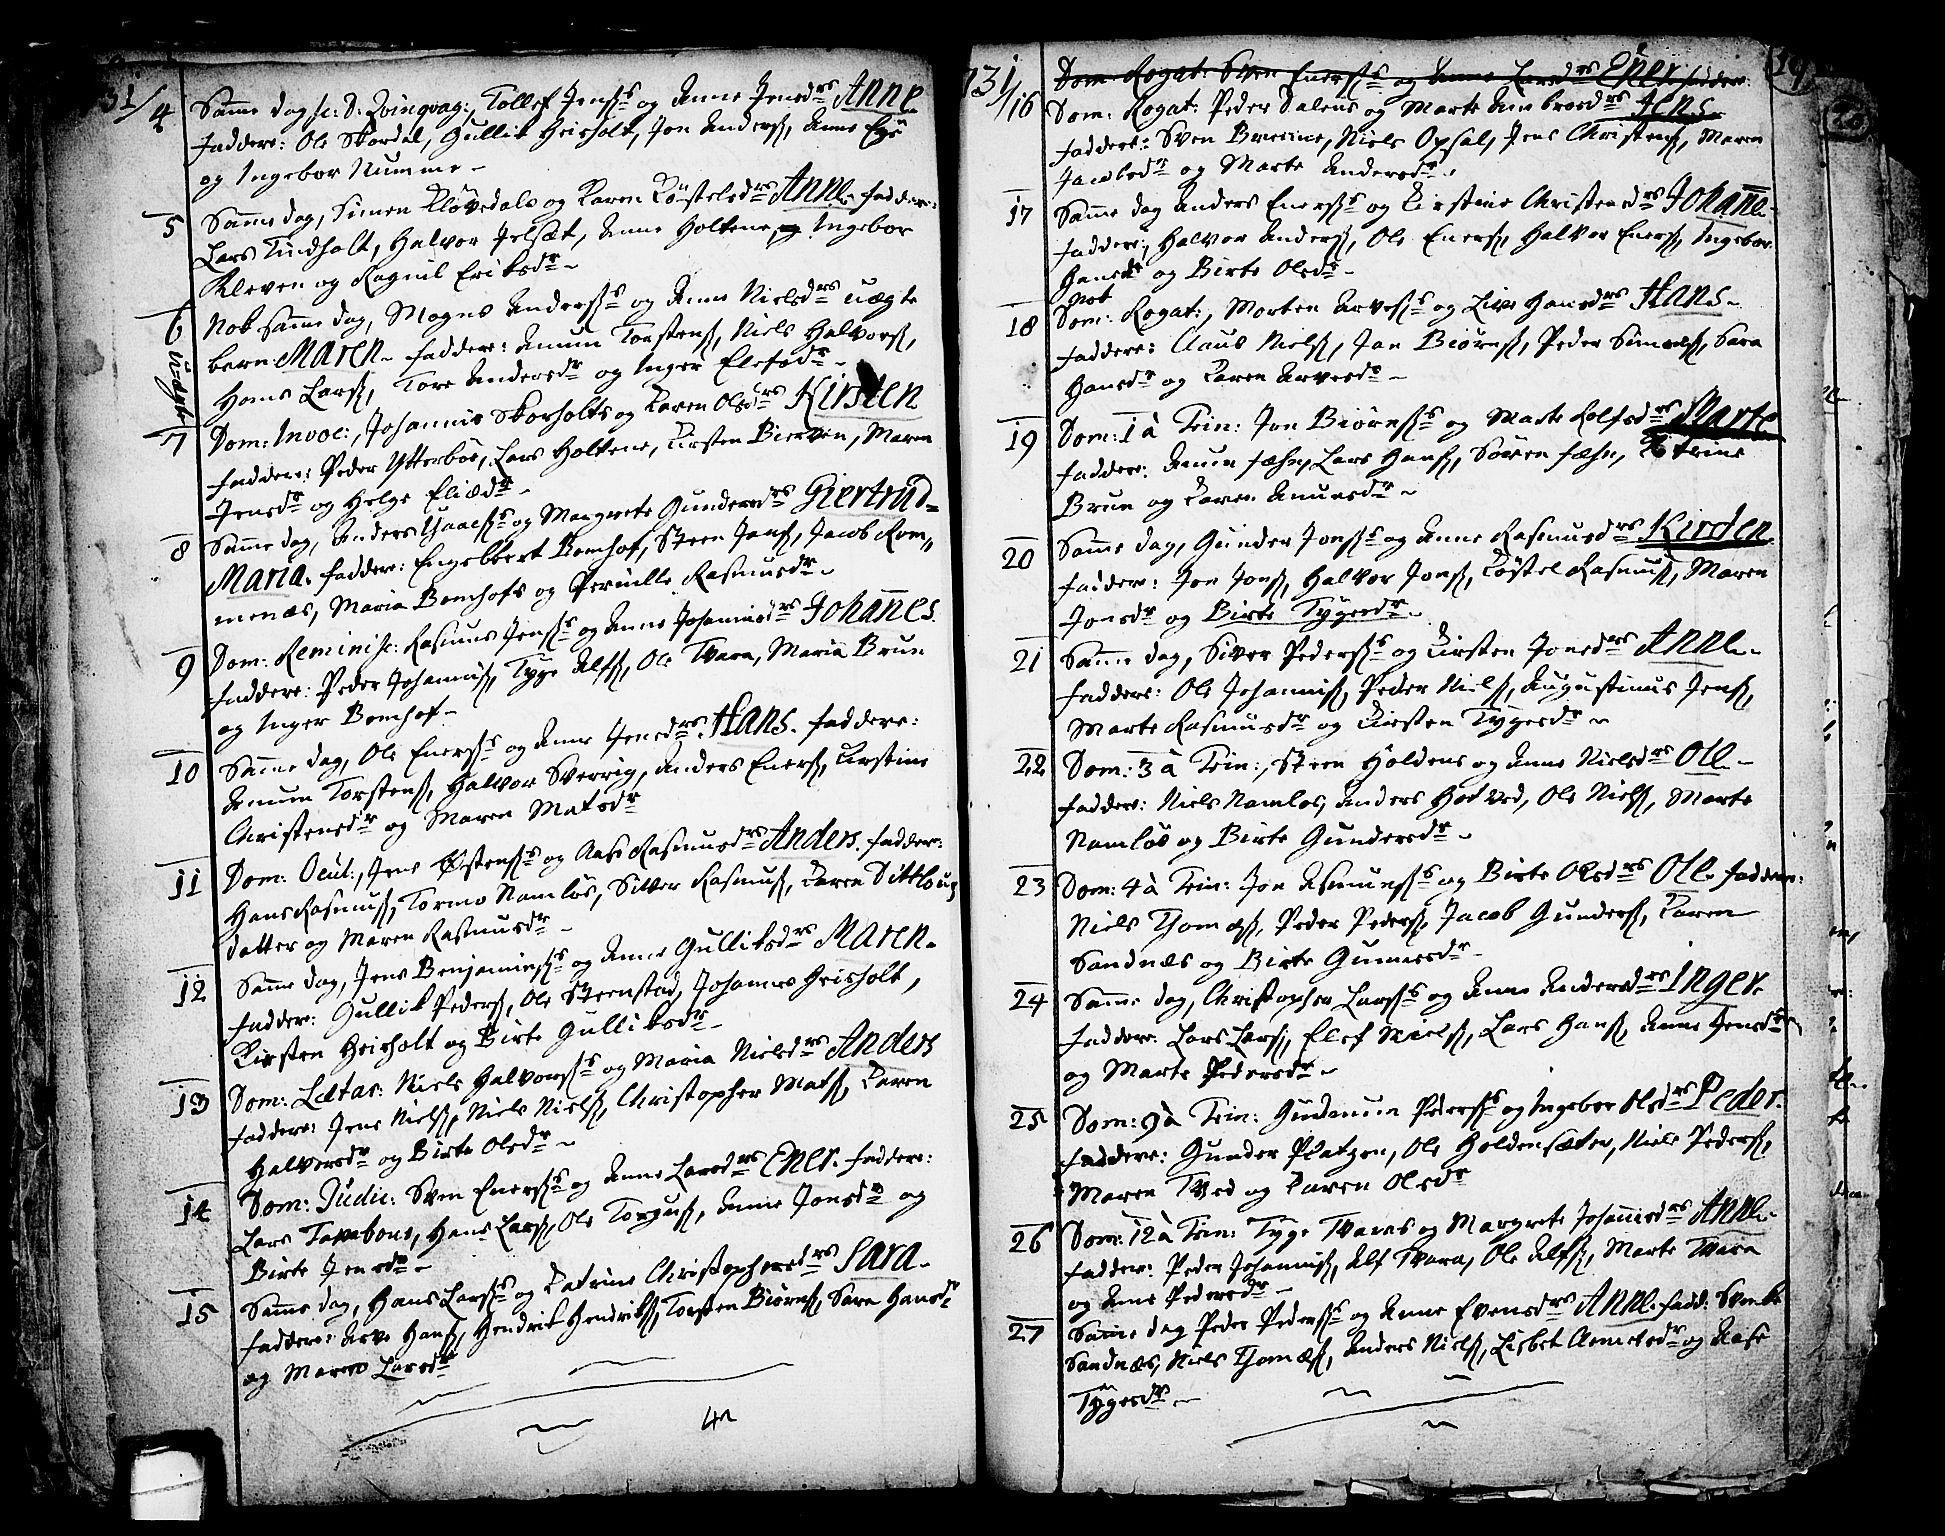 31/4 Samme dag sc: D. Qvinqvag:, Tollef Jenss. s og Anne Jensdrs Anne
faddere: Ole Skordal, Gullik Heisholt, Jon Anderss, Anne
og Ingebor Numme -
5 Samme dag, Simen Kløvedals og Karen Köstelsdrs Anne. faddere:
Lars Tindholt, Halvor Jelset, Anne Holtene, og Ingebor
Kleven og Ragnil Eriksdr -
6 Nok samme dag, Mogns Anderss. s og Anne Nielsdrs uægte
uægte barn Maren. faddere: Amun Torstens, Niels Halvors,
Hans Larss, Tore Andersdr og Inger Elefsdr -
7 Dom: Invoc:, Johannis Skorholts og Karen Olsdrs Kirsten
faddere: Peder Ytterböe, Lars Holtene, Kirsten Bierven, Maren
Jensdr og Helge Eliædr -
8 Samme dag, Anders Isaacss. s og Margrete Gundersdrs Giertrud-
Maria. faddere: Engelbert Bomhof, Steen Janss, Jacob Rom,,
menæs, Maria Bomhofs og Pernille Rasmusdr -
9 Dom: Reminisc: Rasmus Jenss. s og Anne Johannisdrs Johannes.
faddere: Peder Johanniss, Tyge Alfss, Ole Tvara, Maria Brun
og Inger Bomhof -
10 Samme dag, Ole Enerss. s og Anne Jensdrs Hans. faddere:
Amun Torstens, Halvor Sverrig, Anders Eners, Kirstine
Christensdr og Maren Matsdr
11 Dom: Ocul:, Jens Östenss. s og Aase Rasmusdrs Anders. faddere:
Hans Rasmuss, Tormo Namløs, Siver Rasmuss, Karen Dittlous,
datter og Maren Rasmusdr -
12 Samme dag, Jens Benjaminss. s og Anne Gulliksdrs Maren.
faddere: Gullik Peders, Ole Steenstad, Johannes Heisholt,
Kirsten Heisholt og Birte Gulliksdr -
13 Dom: Lætar: Niels Halvorss. s og Maria Nielsdrs Anders
faddere: Jens Nielss, Niels Nielss, Christopher Matss, Karen
Halvorsdr og Birte Olsdr -
14 Dom: Judic: Sven Enerss. s og Anne Larsdrs Ener. faddere:
Lars Tombons, Hans Larss, Ole Torguss, Anne Jonsdr og
Birte Jensdr -
15 Samme dag, Hans Larss. s og Katrine Christophersdrs Sara.
faddere: Arve Hanss, Hendrik Hendrikss, Torsten Biörnss, Sara Hansdr
og Maren Larsdr
4
19
20
731/ Dom: Rogat: Sven Enerss. s og Anne Larsdrs Ener. faddere
16 Dom: Rogat: Peder Dalens og Marte Ambrosdrs Jens.
faddere: Sven Bræcine, Niels Opsal, Jens Christens, Maren
Jacobsdr og Marte Andersdr.
17 Samme dag Anders Enerss. s og Kirstine Christensdrs Johanne.
faddere:, Halvor Anderss, Ole Eners, Halvor Eners, Ingebor
Hansdr og Birte Olsdr -
Nok
18 Dom: Rogat:, Morten Arvess. s og Live Hansdrs Hans.
faddere: Claus Nielss, Jon Biörnss, Peder Simonss, Sara
Hansdr og Karen Arvesdr -
19 Dom: 1 à Trin: Jon Biörnss. s og Marte Rolfsdrs Marte
faddere: Amun fæhn, Lars Hanss, Sören fæhn, Katrine
Brun og Karen Amunsdr -
20 Samme dag, Gunder Jonss. s og Anne Rasmusdrs Kirsten.
faddere: Jon Jonss, Halvor Jonss, Köstel Rasmuss, Maren
Jonsdr og Birte Tygesdr -
21 Samme dag, Siver Pederss. s og Kirsten Jonsdrs Anne.
faddere: Ole Johanniss, Peder Nielss, Augustinus Jenss,
Marte Rasmusdr og Kirsten Tygesdr -
22 Dom: 3 à Trin:, Steen Holdens og Anne Nielsdrs Ole -
faddere: Niels Namløs, Anders Hotved, Ole Nielss, Marte
Namløs og Birte Gundersdr -
23 Dom: 4 à Trin: Jon Asmunss. s og Birte Olsdrs Ole. faddere:
Niels Thomæss, Peder Peders, Jacob Gunders, Karen
Sandnæs og Birte Gunnersdr -
24 Samme dag, Christopher Larss. s og Anne Andersdrs Inger.
faddere: Lars Larss, Elef Nielss, Lars Hanss, Anne Jensdr
og Marte Pedersdr -
25 Dom: 9 à Trin: Gudmun Pederss. s og Ingebor Olsdrs Peder.
faddere: Gunder Platzen, Ole Holdensæter, Niels Peders,
Maren Tved og Karen Olsdr
26 Dom: 12 à Trin: Tyge Tvaras og Margrete Johannisdrs Anne.
faddere: Peder Johanniss, Alf Tvara, Ole Alfss, Marte Tvara
og Anne Pedersdr -
27 Samme dag Peder Pederss. s og Anne Evensdrs Anne. fadd: Svenke
Sandnæs, Niels Thomæss, Anders Nielss, Lisbet Amelsdr og Aase
Tygesdr -